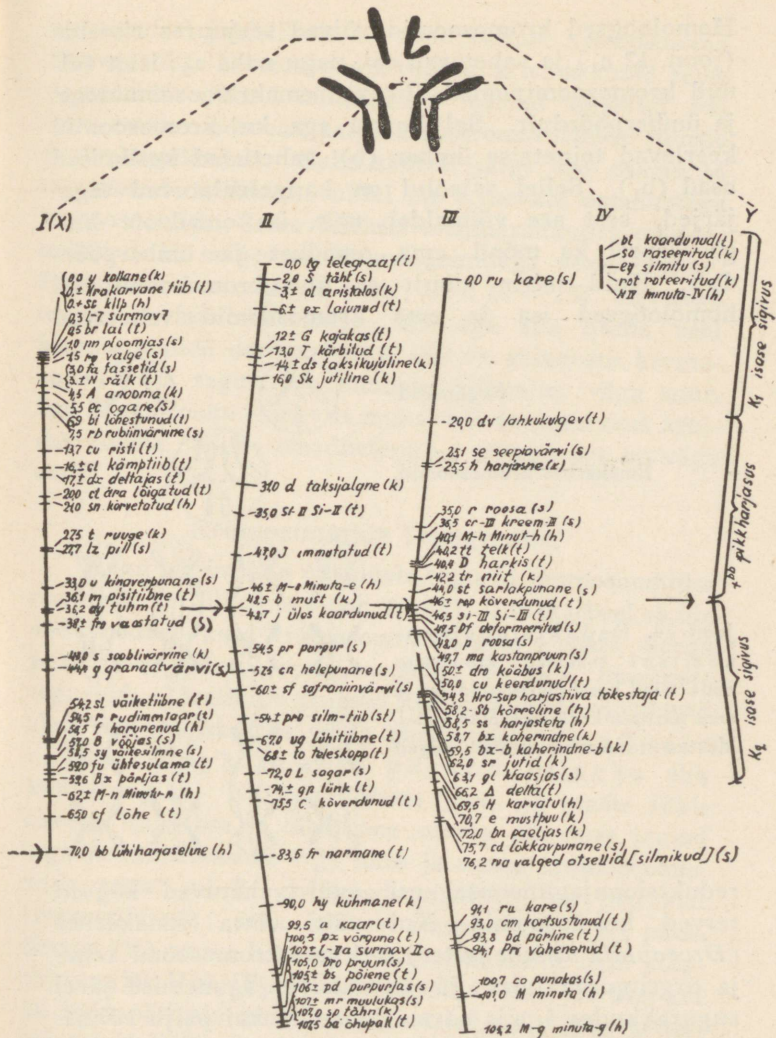 I (X)
0,0 y kollane (k)
0,± Hw karvane tiib (t)
0,+ Sc kilp (h)
0,3 l-7 surmav 7
0,5 br lai (t)
1,0 pn ploomjas (s)
1,5 w valge (s)
3,0 fa tassetid (s)
3,± N sälk (t)
4,5 A anooma (k)
5,5 ec ogane (s)
6,9 bi lõhestunud (t)
7,5 rb rubiinvärvine (s)
13,7 cv risti (t)
16,± cl kämptiib (t)
17,± dx deltajas (t)
20,0 ct ära lõigatud (t)
21,0 sn kõrvetatud (h)
27,5 t ruuge (k)
27,7 lz pill (s)
33,0 v kinaverpunane (s)
36,1 m pisitiibne (t)
36,2 dy tuhm (t)
38,± fw vaostatud (s)
43,0 s sooblivärvine (k)
44,4 g granaatvärvi (s)
54,2 sl väiketiibne (t)
54,5 r rudimmtaar (t)
56,5 f harunenud (h)
57,0 B vööjas (s)
sy väikesilmne (s)
59,0 fu ühtesulama (t)
59,6 Bx pärljas (t)
62,± M-n Minuta-n (h)
65,0 cf lõhe (t)
70,0 bb lühiharjaseline (h)
II
0,0 tg telegraaf (t)
2,0 S täht (s)
3,± al aristalos (k)
6,± ex laiunud (t)
12,± G kajakas (t)
13,0 T kärbitud (t)
14,± ds taksikujuline (k)
16,0 Sk jutiline (k)
31,0 d taksijalgne (k)
35,0 Si-II Si-II (t)
41,0 J immutatud (t)
46,± M-e Minuta-e (h)
48,5 b must (k)
48,7 j üles kaardunud (t)
54,5 pr purpur (s)
57,5 cn helepunane (s)
60,± sf safraniinvärvi (s)
64,± pw silm-tiib (st)
67,0 vg lühitiibne (t)
68,± to teleskopp (t)
72,0 L sagar (s)
74,± gp lünk (t)
75,5 c kõverdunud (t)
83,5 fr narmane (t)
90,0 hy kühmane (k)
99,5 a kaar (t)
100,5 px võrgune (t)
102,± l-IIa surmav IIa
105,0 bw pruun (s)
105,± bs põiene (t)
106,± pd purpurjas (s)
107,± mr muulukas (s)
107,0 sp tähn (k)
107,5 ba õhupall (t)
III
0,0 ru kare (s)
20,0 dv lahkukulgev (t)
25,1 se seepiavärvi (s)
25,5 h harjasne (k)
35,0 r roosa (s)
36,5 cr-III kreem-III (s)
40,1 M-h Minut-h (h)
40,2 tt telk (t)
40,4 D harkis (t)
42,2 tr niit (k)
44,0 st sarlakpunane (s)
46,± wp kõverdunud (t)
46,5 si-III Si-III (t)
47,5 Df deformeeritud (s)
48,0 p roosa (s)
49,7 ma kastanpruun (s)
50,± dw kääbus (k)
50,0 cu keerdunud (t)
54,8 Hw-sup harjastiiva tõkestaja (t)
58,2 Sb kõrreline (h)
58,5 ss harjasteta (h)
58,7 bx kaherindne (k)
59,5 bx-b kaherindne-b (k)
62,0 sr jutid (k)
63,1 gl klaasjas (s)
66,2 Δ delta (t)
69,5 H karvatu (h)
70,7 e mustpuu (k)
72,0 bn paeljas (k)
75,7 cd lõkkavpunane (s)
76,2 wa valged otsellid [silmikud] (s)
91,1 ra kare (s)
93,0 cm kortsustunud (t)
93,8 bd pärline (t)
94,1 Prs vähenenud (t)
100,7 co punakas (s)
101,0 M minuta (h)
106,2 M-g minuta-g (h)
IV
bt kaardunud (t)
so raseeritud (k)
ey silmitu (s)
rot roteeritud (k)
M IV minuta-IV (h)
Y
K1 isase sigivus
+bb pikkharjasus
K2 isase sigivus